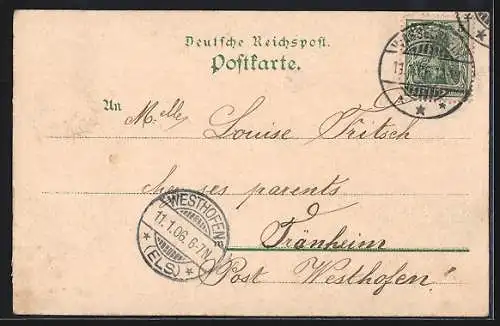 Deutsche Reichspost.
Postkarte.
An
M.elles Louise Fritsch
chez ses parents
à
Tränheim
Post Westhofen!
WESTHOFEN
11.1.06. 6-7N
* (ELS) *